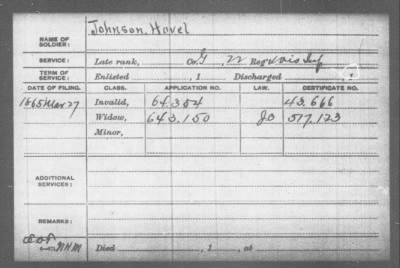 NAME OF SOLDIER: Johnson, Hovel
SERVICE: Late rank, Co. G, 22 Reg't Wis Inf
TERM OF SERVICE: Enlisted , 1 Discharged , 1
DATE OF FILING. CLASS. APPLICATION NO. LAW. CERTIFICATE NO.
1865 Mar 27 Invalid, 64.354 43.666
Widow, 643.150 517.123
Minor,
ADDITIONAL SERVICES:
REMARKS:
Died , 1 , at